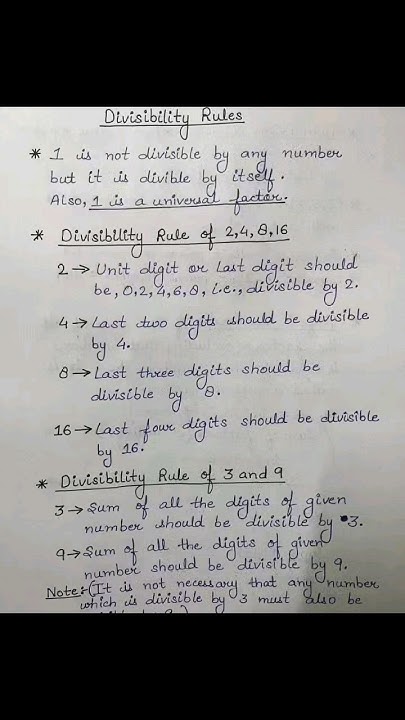 Divisibility Rules
* 1 is not divisible by any number
but it is divible by itself.
Also, 1 is a universal factor.
* Divisibility Rule of 2,4,8,16
2 → Unit digit or Last digit should
be, 0,2,4,6,8, i.e., divisible by 2.
4 → Last two digits should be divisible
by 4.
8 → Last three digits should be
divisible by 8.
16 → Last four digits should be divisible
by 16.
* Divisibility Rule of 3 and 9
3 → Sum of all the digits of given
number should be divisible by 3.
9 → Sum of all the digits of given
number should be divisible by 9.
Note:- (It is not necessary that any number
which is divisible by 3 must also be